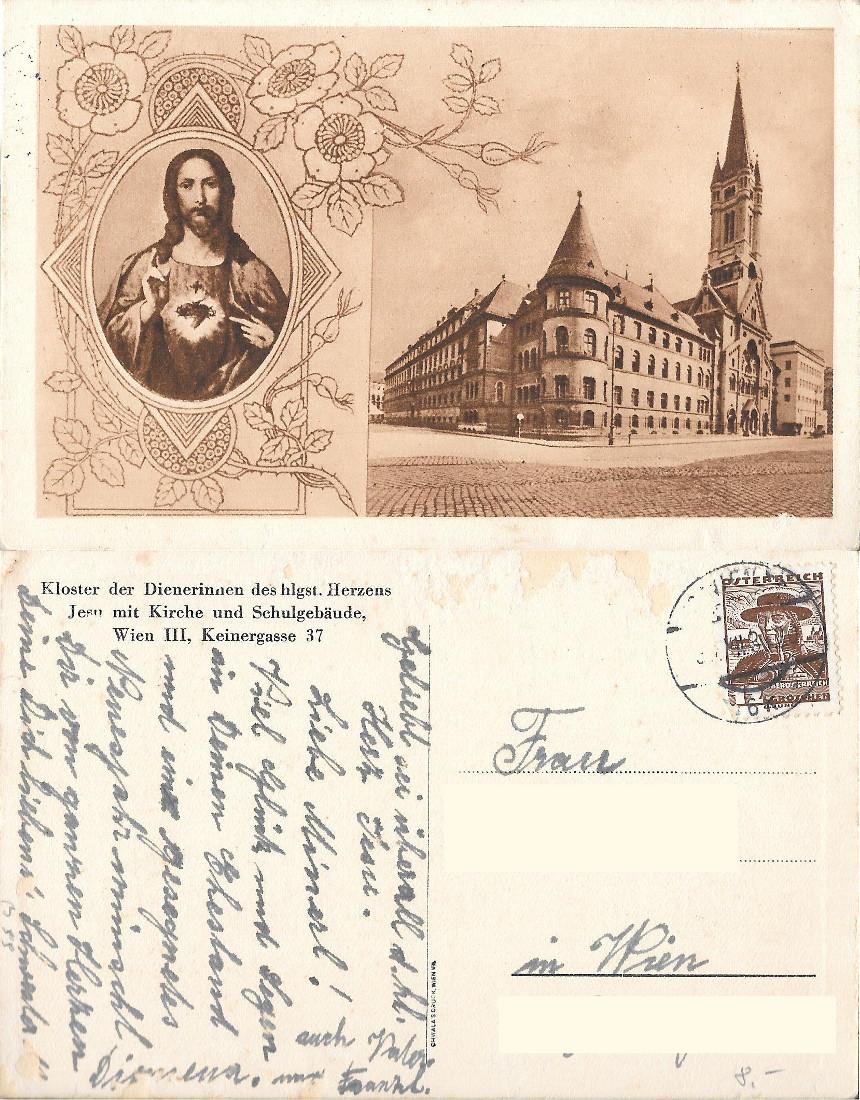 Kloster der Dienerinnen des hlgst. Herzens
Jesu mit Kirche und Schulgebäude,
Wien III, Keinergasse 37
Geliebt sei überall d. hl.
Herz Jesu.
Liebe Minerl!
Viel Glück und Segen
in Deinen Ehestand
und ein gesegnetes
Neuesjahr wünscht
Dir vom ganzen Herzen
Deine Dich liebende Schwester
auch Vater
und Franzl.
CHWALA'S DRUCK, WIEN VII.
ÖSTERREICH
GROSCHEN
Frau
in Wien
8.-